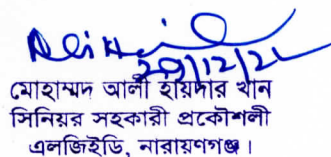 ২০/১২/২২
মোহাম্মদ আলী হায়দার খান
সিনিয়র সহকারী প্রকৌশলী
এলজিইডি, নারায়ণগঞ্জ।